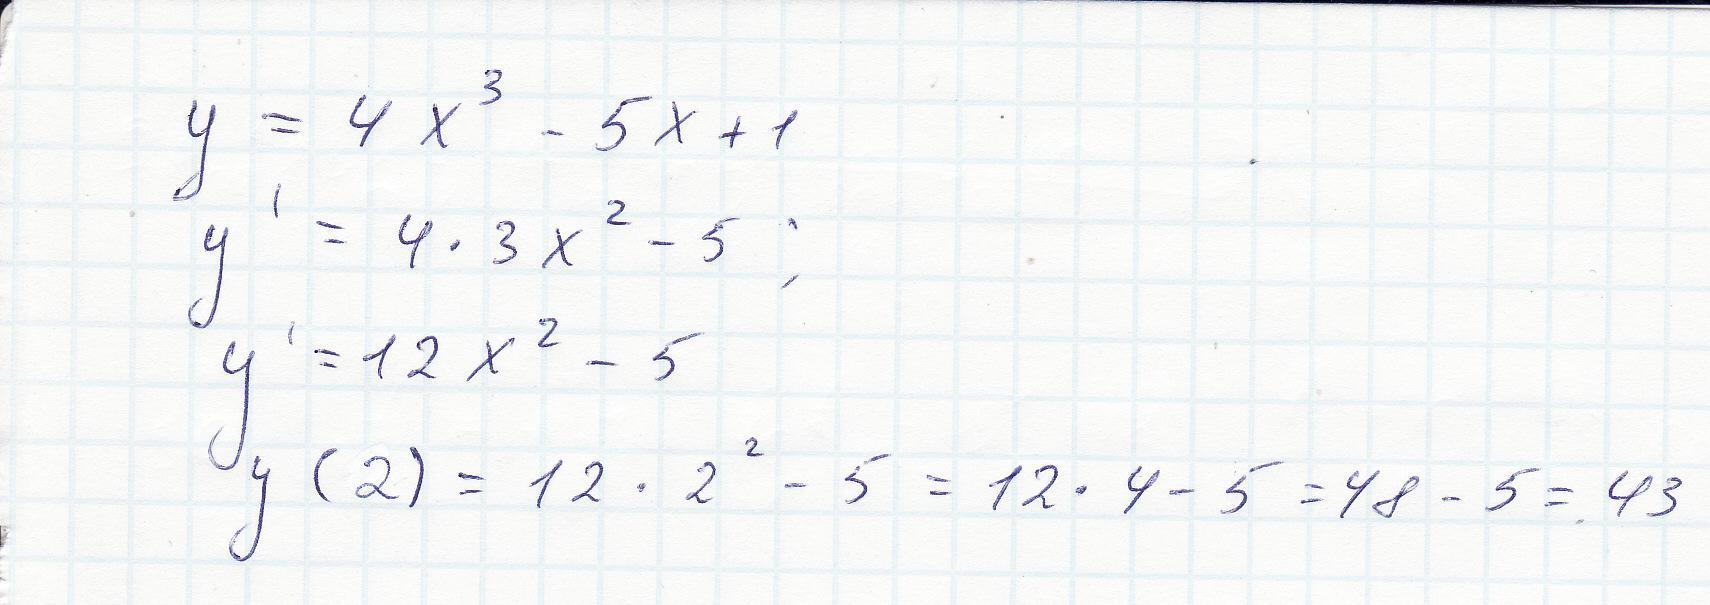 y = 4x³ - 5x + 1
y' = 4·3x² - 5;
y' = 12x² - 5
y(2) = 12·2² - 5 = 12·4 - 5 = 48 - 5 = 43